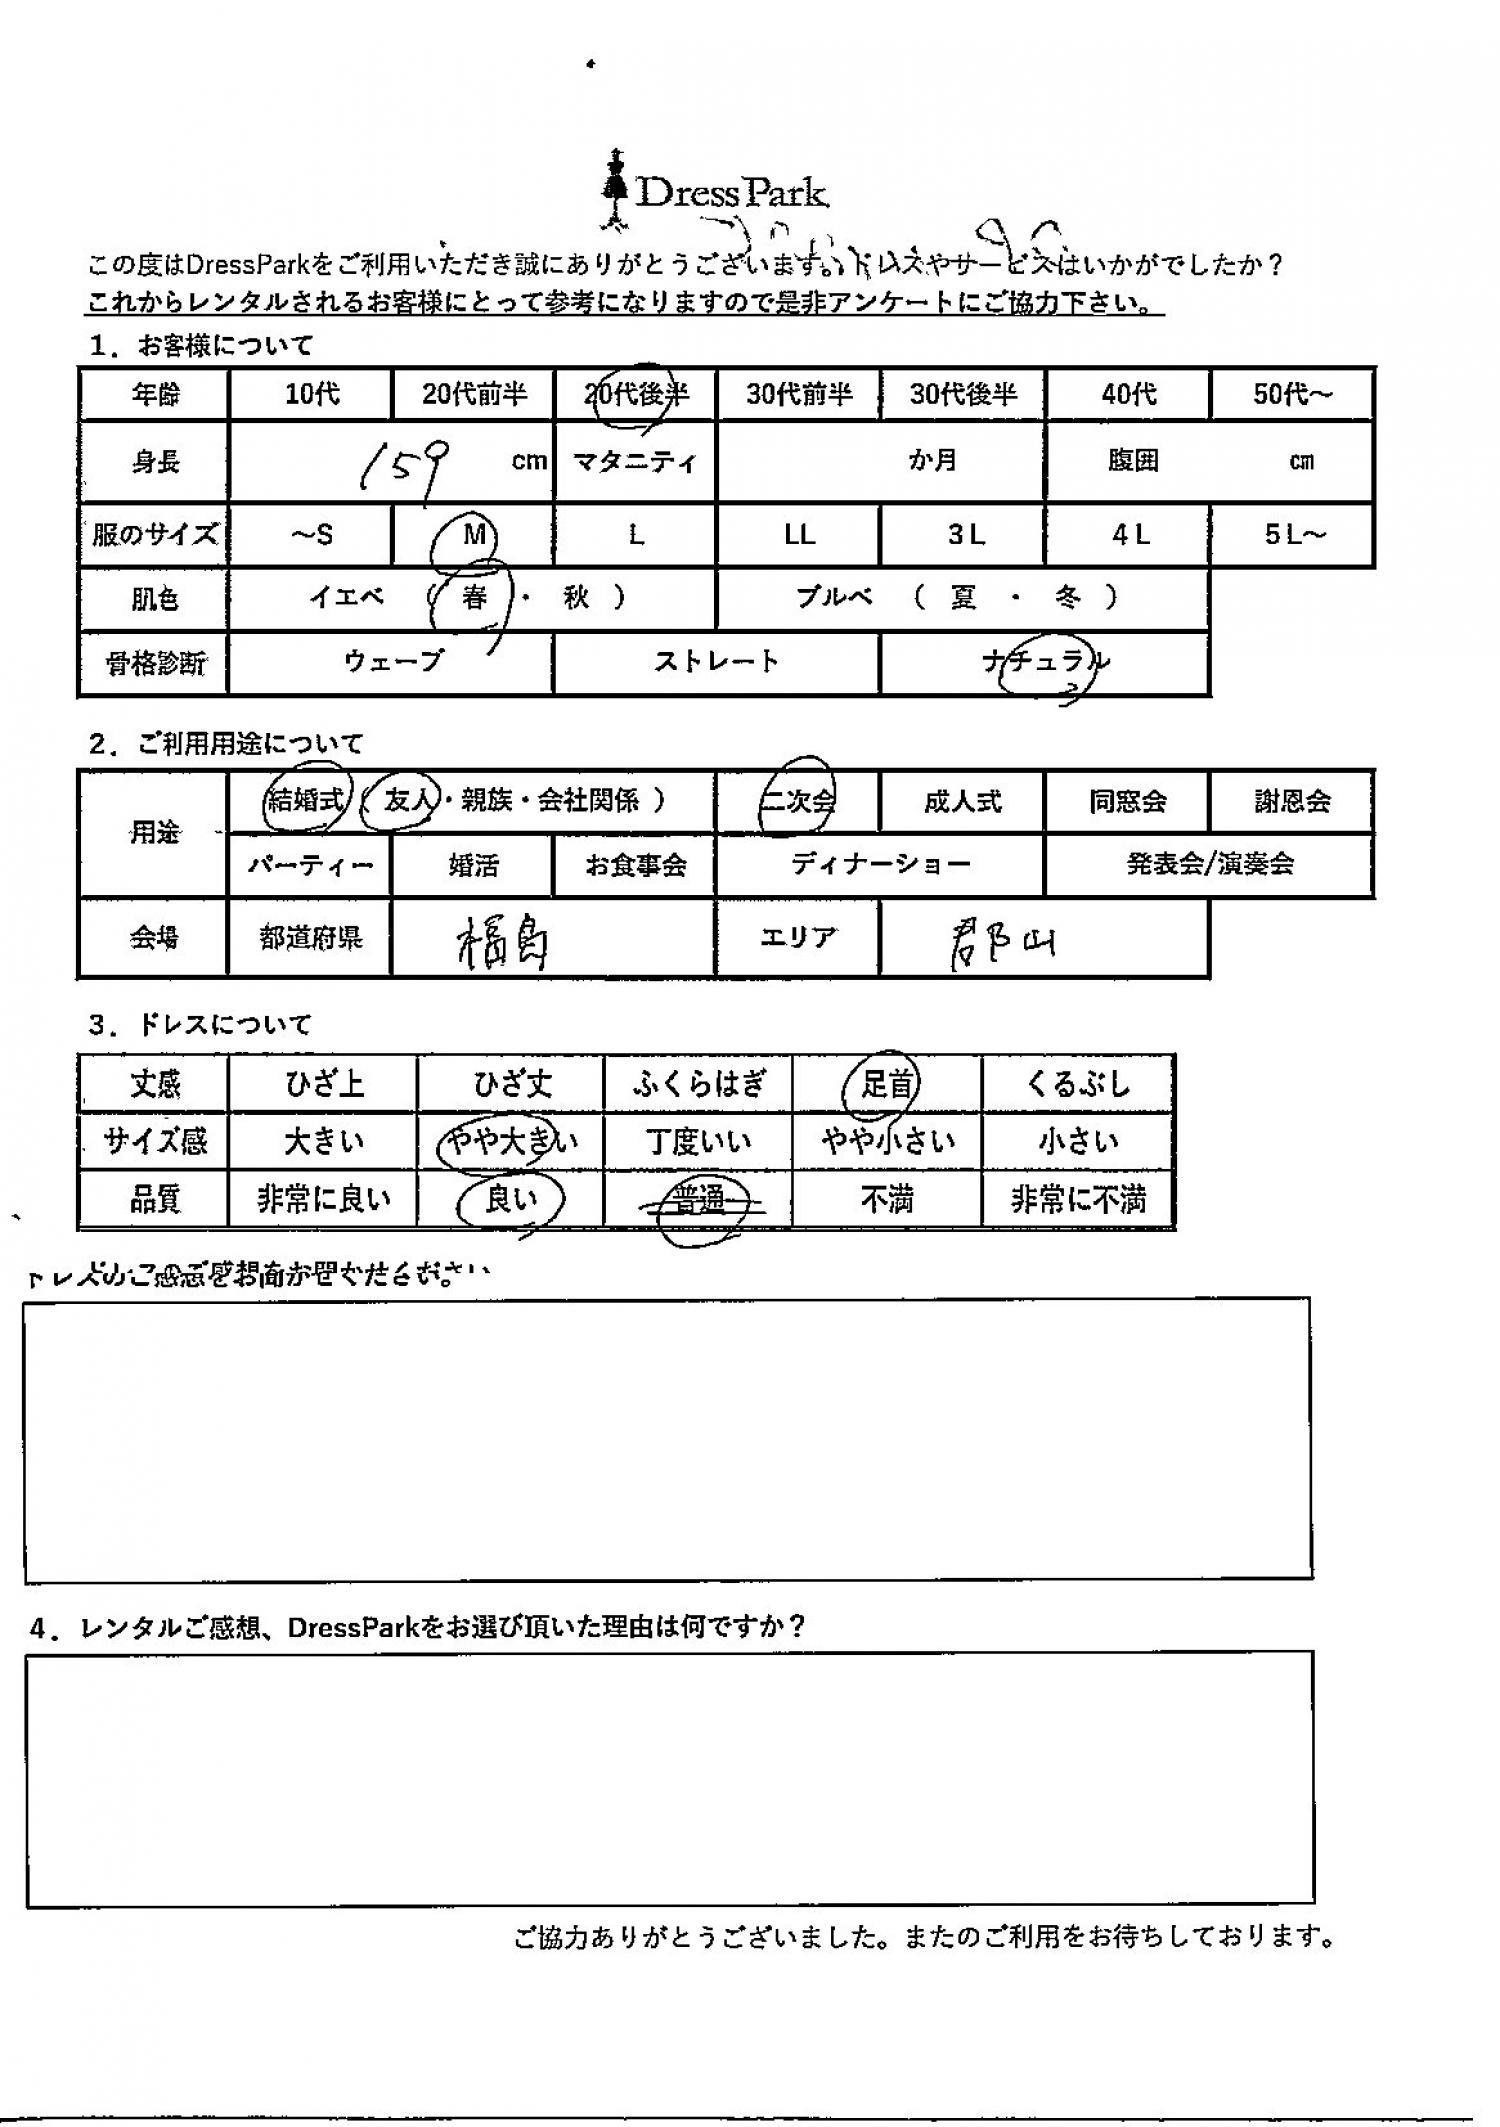 DressPark
この度はDressParkをご利用いただき誠にありがとうございます。ドレスやサービスはいかがでしたか？
これからレンタルされるお客様にとって参考になりますので是非アンケートにご協力下さい。
1．お客様について
年齢 10代 20代前半 20代後半 30代前半 30代後半 40代 50代～
身長 159 cm マタニティ か月 腹囲 ㎝
服のサイズ ～S M L LL 3L 4L 5L～
肌色 イエベ （ 春 ・ 秋 ） ブルベ （ 夏 ・ 冬 ）
骨格診断 ウェーブ ストレート ナチュラル
2．ご利用用途について
用途 結婚式（ 友人・親族・会社関係 ） 二次会 成人式 同窓会 謝恩会
パーティー 婚活 お食事会 ディナーショー 発表会/演奏会
会場 都道府県 福島 エリア 郡山
3．ドレスについて
丈感 ひざ上 ひざ丈 ふくらはぎ 足首 くるぶし
サイズ感 大きい やや大きい 丁度いい やや小さい 小さい
品質 非常に良い 良い 普通 不満 非常に不満
4．レンタルご感想、DressParkをお選び頂いた理由は何ですか？
ご協力ありがとうございました。またのご利用をお待ちしております。